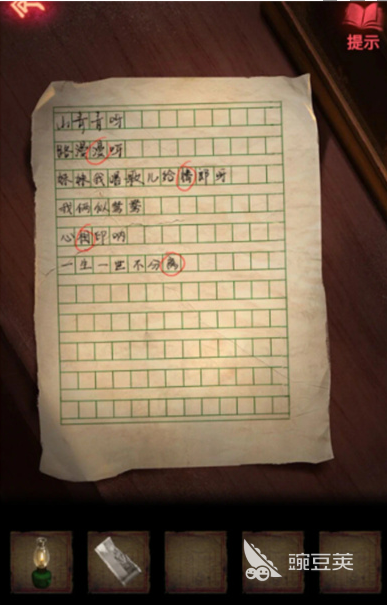 提示
小哥哥呀
路漫漫呀
妹妹我唱歌儿给情郎听
我俩似鸳鸯
心相印呐
一生一世不分离
豌豆荚